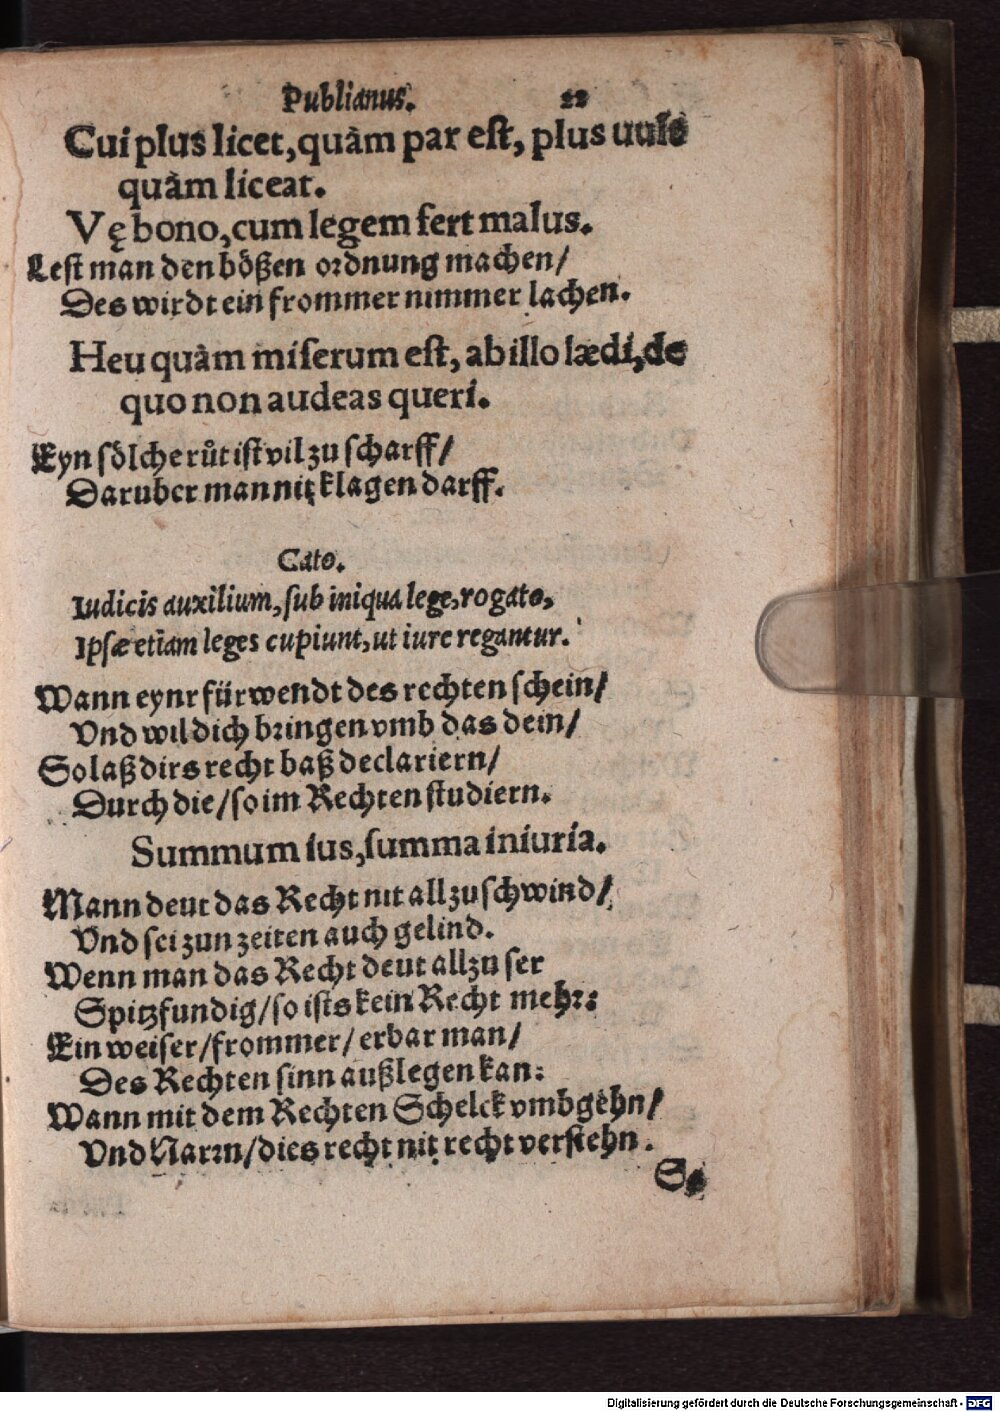 Publianus. 22
Cui plus licet, quàm par est, plus uult
quàm liceat.
Vę bono, cum legem fert malus.
Lest man den bößen ordnung machen/
Des wirdt ein frommer nimmer lachen.
Heu quàm miserum est, ab illo lædi, de
quo non audeas queri.
Eyn sölche růt ist vil zu scharff/
Daruber man nit klagen darff.
Cato.
Iudicis auxilium, sub iniqua lege, rogato,
Ipsæ etiam leges cupiunt, ut iure regantur.
Wann eynr fürwendt des rechten schein/
Vnd wil dich bringen vmb das dein/
So laß dirs recht baß declariern/
Durch die/ so im Rechten studiern.
Summum ius, summa iniuria.
Mann deut das Recht nit allzu schwind/
Vnd sei zun zeiten auch gelind.
Wenn man das Recht deut allzu ser
Spitzfundig/ so ists kein Recht mehr:
Ein weiser/ frommer/ erbar man/
Des Rechten sinn außlegen kan:
Wann mit dem Rechten Schelck vmbgehn/
Vnd Narrn/ dies recht nit recht verstehn.
So
Digitalisierung gefördert durch die Deutsche Forschungsgemeinschaft - DFG